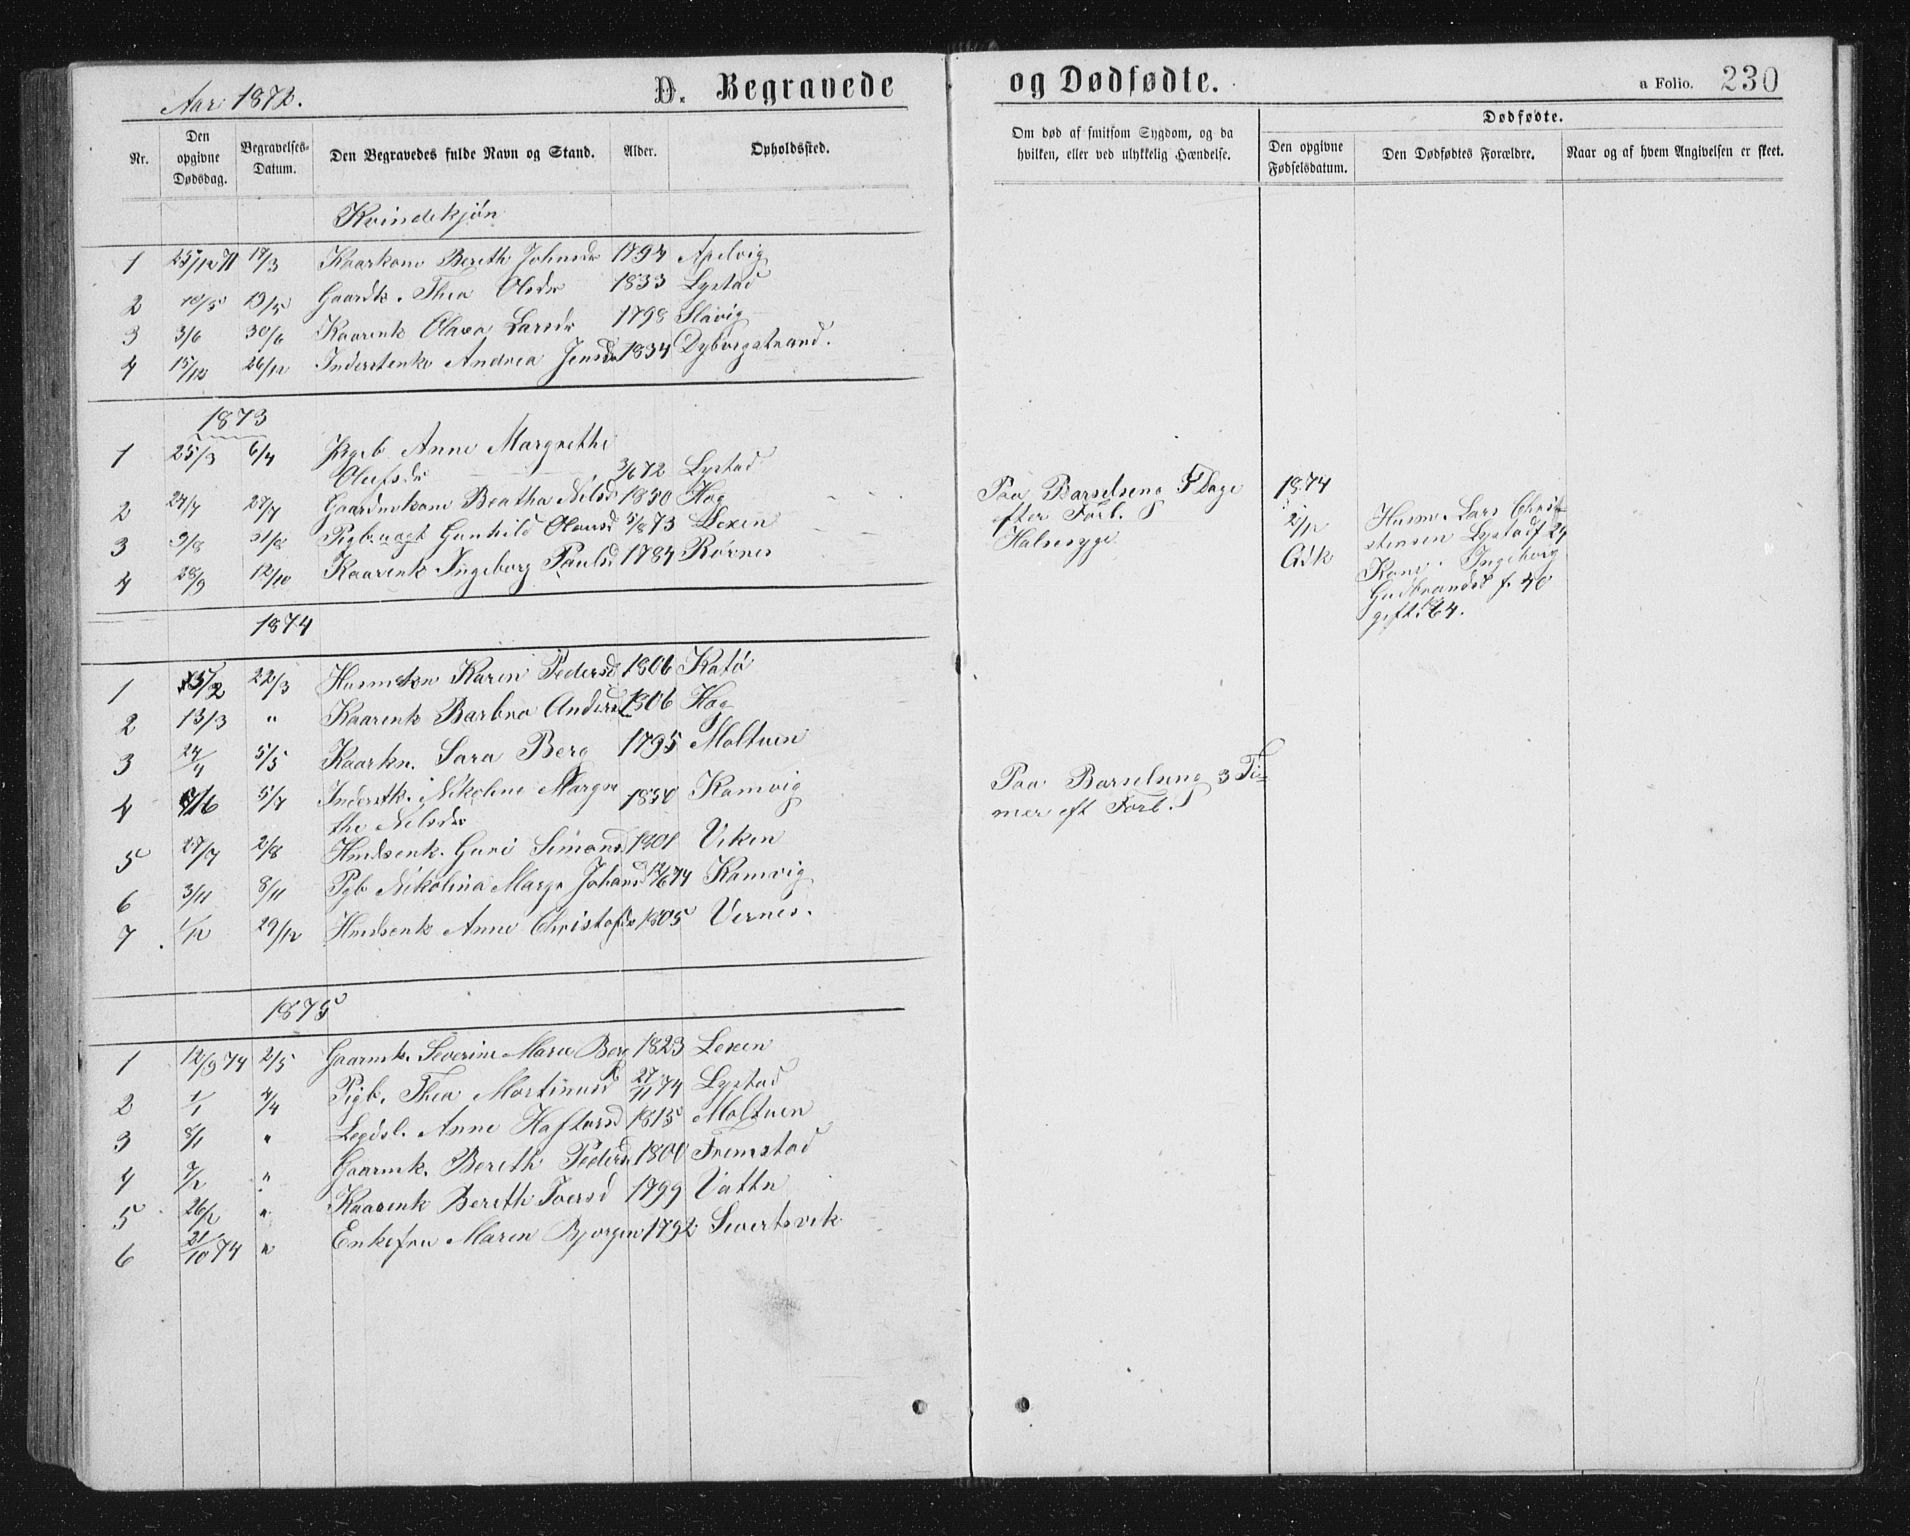 Aar 1872.
D. Begravede
og Dødfødte.
a Folio. 230
Nr.
Den opgivne Dødsdag.
Begravelses-Datum.
Den Begravedes fulde Navn og Stand.
Alder.
Opholdssted.
Om død af smitsom Sygdom, og da hvilken, eller ved ulykkelig Hændelse.
Dødfødte.
Den opgivne Fødselsdatum.
Den Dødfødtes Forældre.
Naar og af hvem Angivelsen er skeet.
Kvindekjøn
1 25/12 71 17/3 Kaarkone Bereth Johnsdr 1794 Apelvig
2 10/5 19/5 Gaardk. Thea Olsdr 1833 Lystad
3 3/6 30/6 Kaarenk Olava Larsdr 1798 Slavig
4 15/12 26/12 Inderstenke Andrea Jensdr 1834 Dyborgstrand.
1873
1 25/3 6/4 Pigeb Anne Margrethe
Olufsdr 3/6 72 Lystad
2 24/7 27/7 Gaardmkone Beatha Nilsd 1830 Hag
Paa Barselseng 5 Dage
efter Forb.
3 9/8 31/8 Pigb. uægt Gunhild Olausd 5/8 73 Lexen
Halssyge
4 28/9 12/10 Kaarenk Ingeborg Paulsd 1784 Rørnes
1874
2/12
Gdk
Husm. Lars Chri-
stensen Lystad f 24
Kone Ingeborg
Gudbrandsd f. 40
gift 64.
1874
1 15/2 22/3 Husmkn Karen Pedersd 1806 Katø
2 13/3 " Kaarenk Barbro Andersd 1806 Hag
3 24/4 5/5 Kaarkn. Sara Berg 1795 Moltuen
4 /6 5/7 Inderstk. Nikoline Margre
the Nelsdr 1830 Kamvig
Paa Barselseng 3 Ti-
mer eft Forb.
5 27/7 2/8 Hmdsenk. Guri Simonsd 1801 Viken
6 3/11 8/11 Pgb Nikolina Margr Johansd 12/6 74 Kamvig
7 1/12 29/12 Hmdsenk Anne Christofdr 1805 Vernes.
1875
1 12/9 74 2/5 Gaarmk. Severine Marie Berg 1823 Lexen
2 1/1 4/4 Pigb. Thea Martinusd 27/11 74 Lystad
3 8/1 " Legdsl. Anne Haftorsd 1815 Moltuen
4 7/2 " Gaarmk. Bereth Pedersd 1800 Fremstad
5 26/2 " Kaarenk Bereth Iversd 1799 Vattn
6 21/10 74 " Enkefru Maren Bjørgen 1792 Sivertsvik